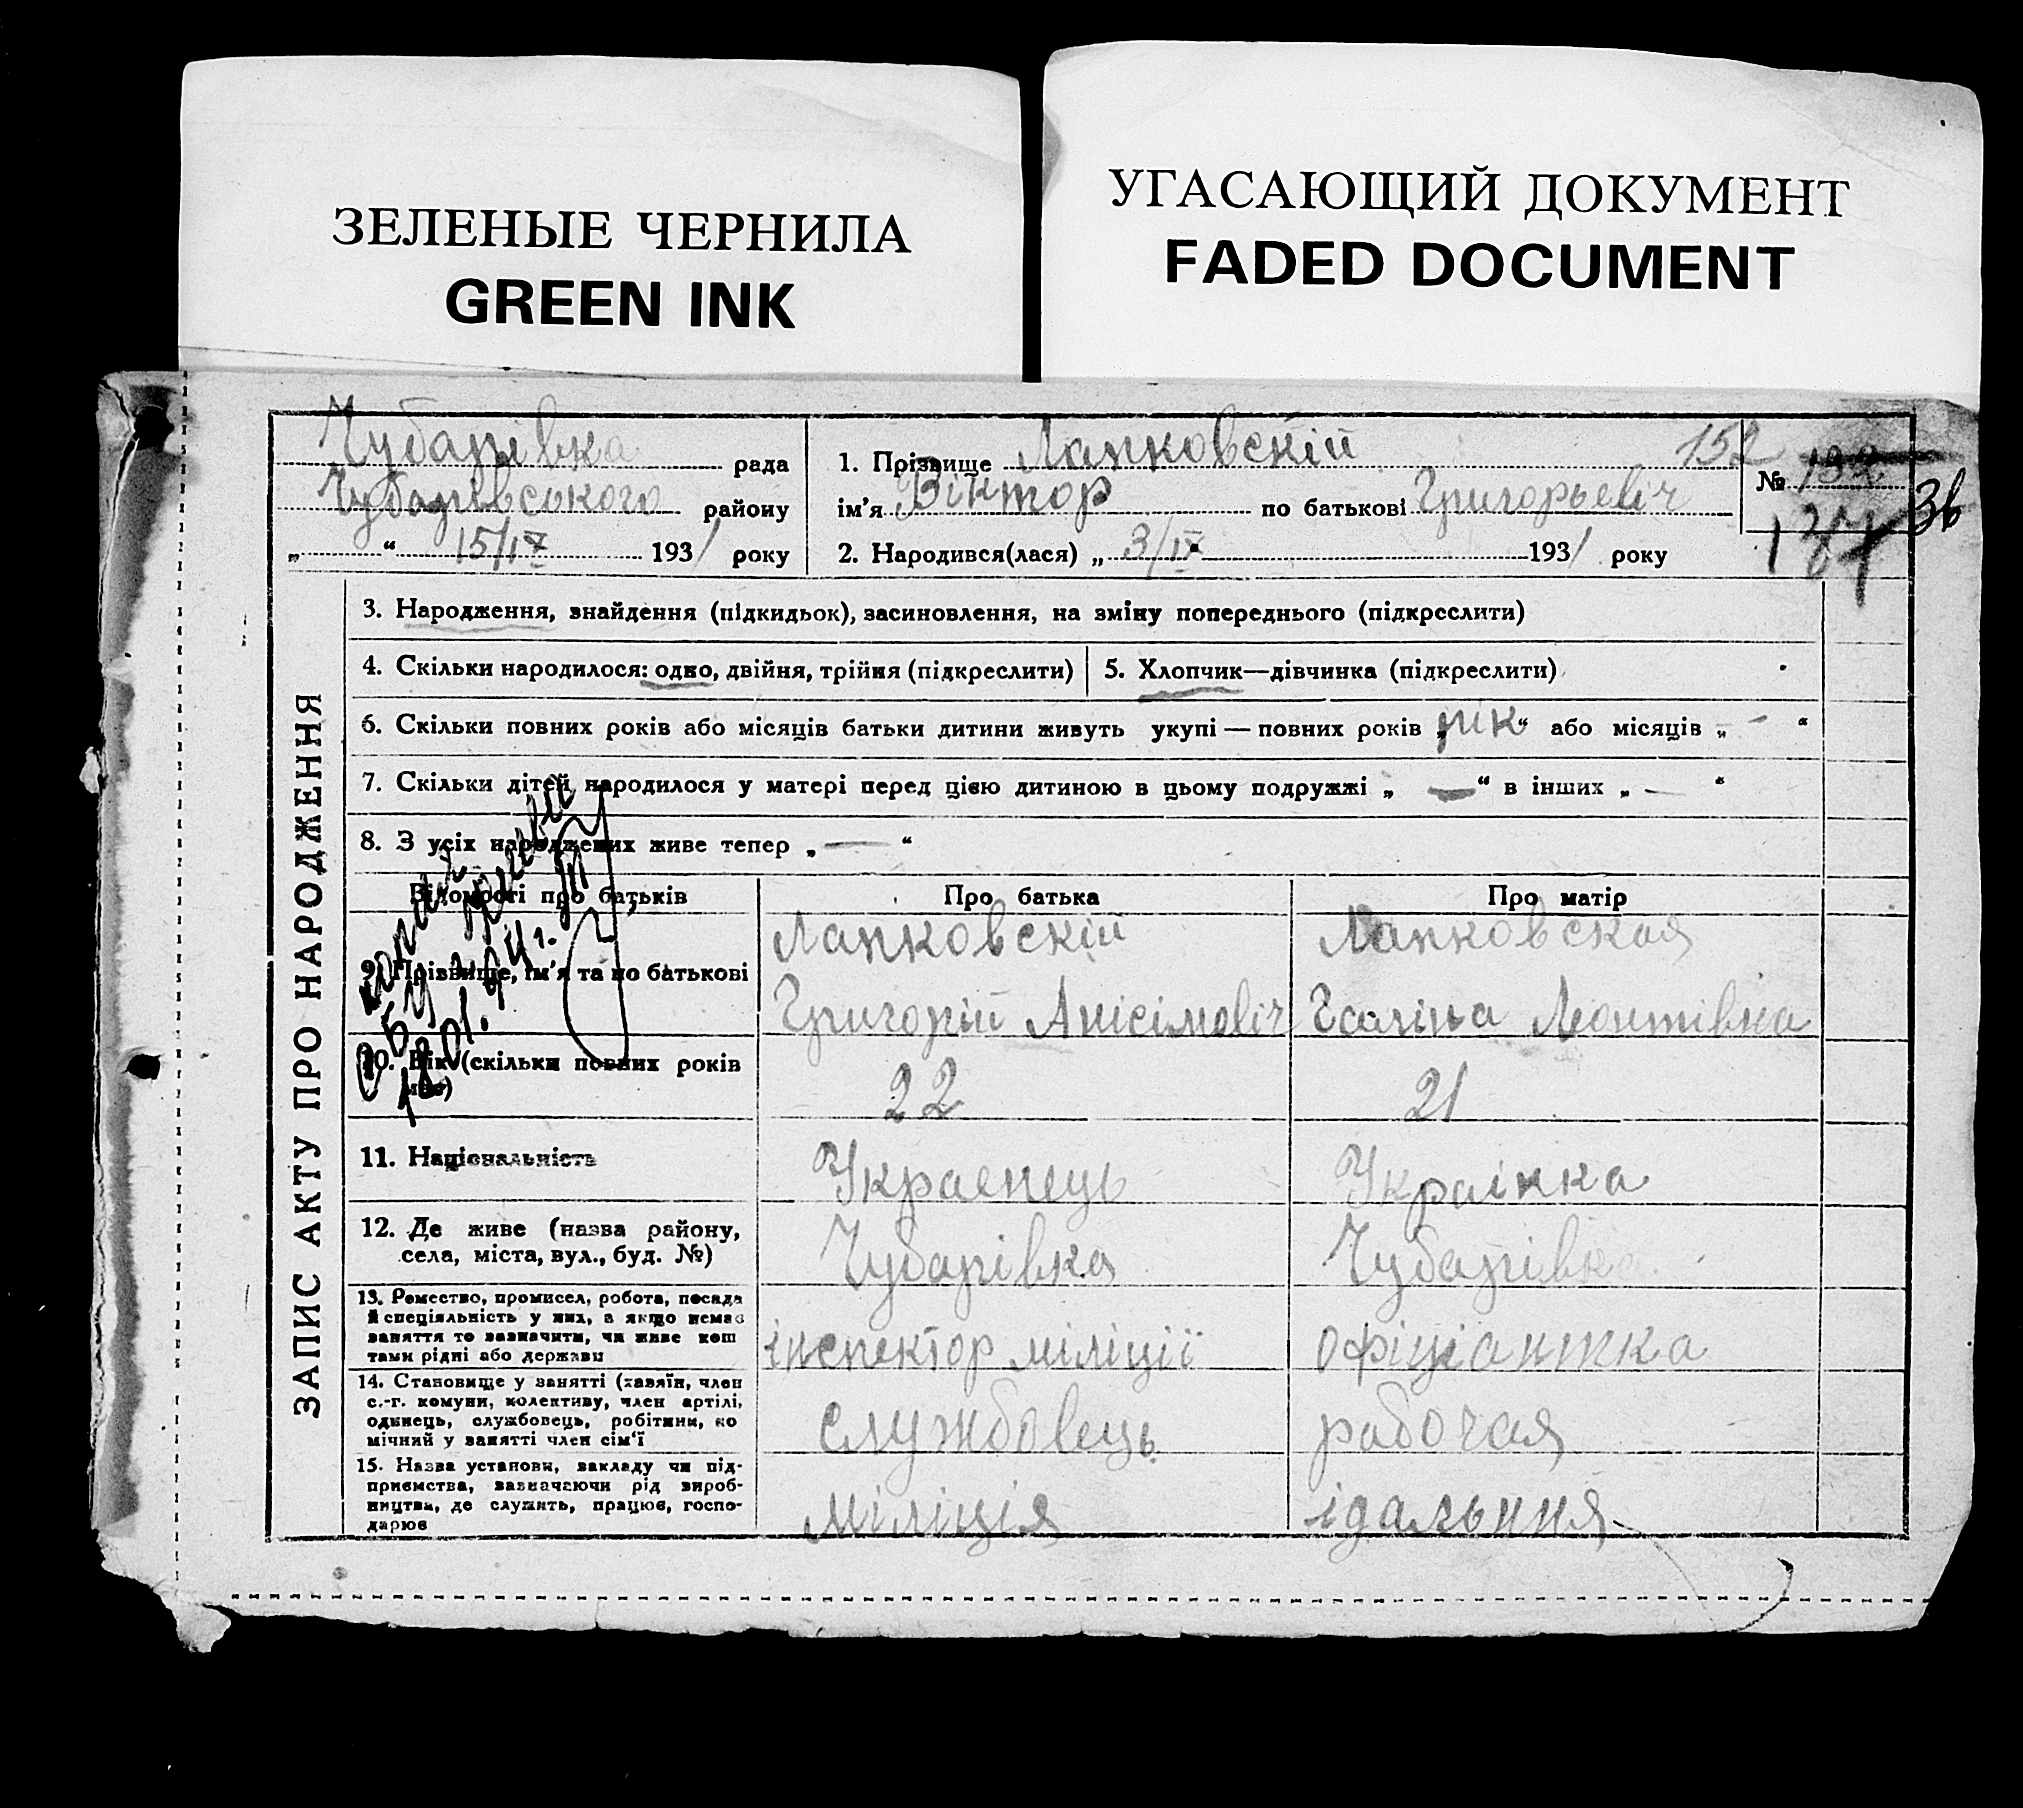 ЗЕЛЕНЫЕ ЧЕРНИЛА
GREEN INK
УГАСАЮЩИЙ ДОКУМЕНТ
FADED DOCUMENT
Чубарівка рада
Чубарівського району
„ “ 15/IX 1931 року
1. Прізвище Лапковскій
ім'я Віктор по батькові Григорьевіч
2. Народився(лася) „ 3/IX 1931 року
152
№
3в
ЗАПИС АКТУ ПРО НАРОДЖЕННЯ
3. Народження, знайдення (підкидьок), засиновлення, на зміну попереднього (підкреслити)
4. Скільки народилося: одно, двійня, трійня (підкреслити)
5. Хлопчик—дівчинка (підкреслити)
6. Скільки повних років або місяців батьки дитини живуть укупі — повних років „рік“ або місяців „ - “
7. Скільки дітей народилося у матері перед цією дитиною в цьому подружжі „ — “ в інших „ — “
8. З усіх народжених живе тепер „ — “
Відомості про батьків
Про батька
Про матір
9. Прізвище, ім'я та по батькові
Лапковскій
Григорій Анісімовіч
Лапковская
Галіна Леонтівна
10. Вік (скільки повних років
має)
22
21
11. Національність
Украенець
Украінка
12. Де живе (назва району,
села, міста, вул., буд. №)
Чубарівка
Чубарівка
13. Ремество, промисел, робота, посада
й спеціяльність у них, а якщо немає
заняття то зазначити, чи живе кош
тами рідні або держави
інспектор міліціі
офіціантка
14. Становище у занятті (хазяїн, член
с.-г. комуни, колективу, член артілі,
одинець, службовець, робітник, по
мічний у занятті член сім'ї
службовець
рабочая
15. Назва установи, закладу чи під-
приємства, зазначаючи рід вироб-
ництва, де служить, працює, госпо-
дарює
міліція
ідальння